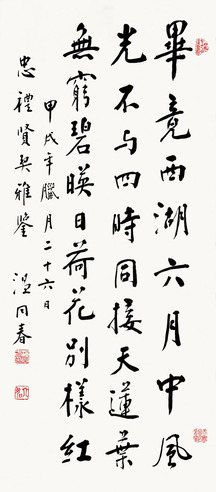 畢竟西湖六月中風
光不与四時同接天蓮葉
無窮碧暎日荷花別樣紅
甲戌年臘月二十六日
忠禮賢契雅鑒 同春